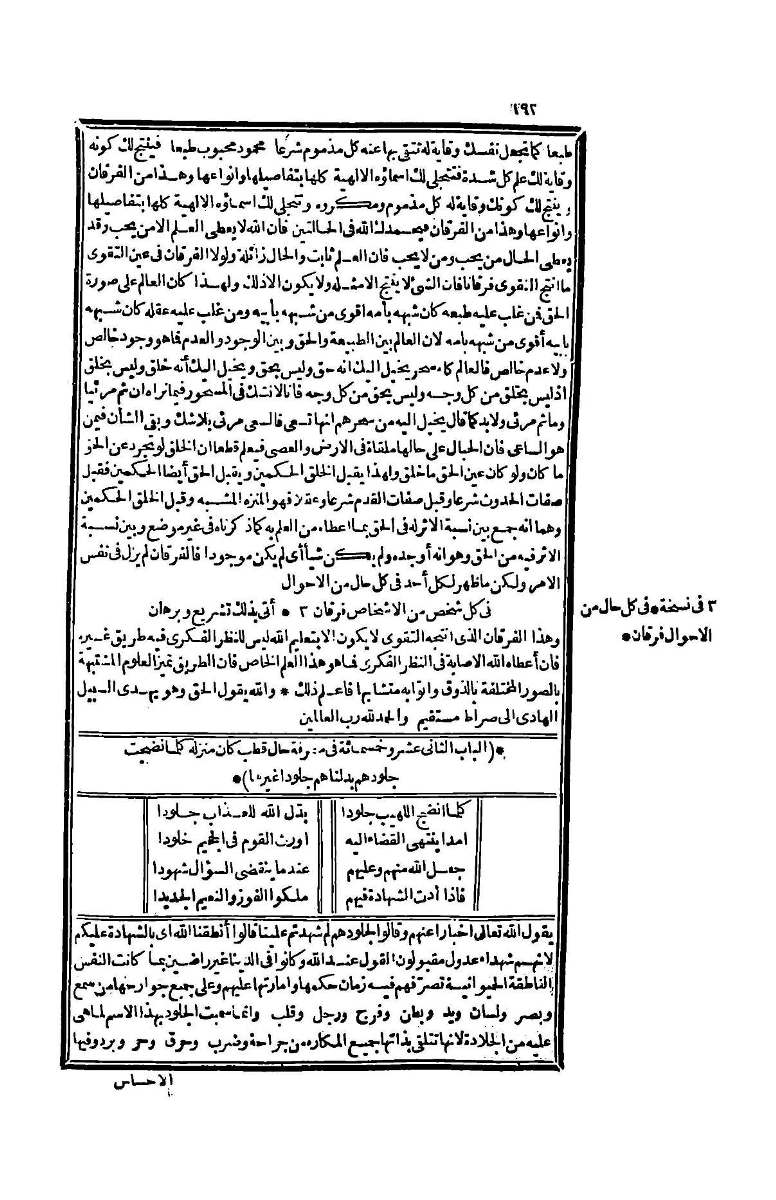 ١٩٢
طبعا كما تجعل نفسك وقاية له تتقى بها عنه كل مذموم شرعا محمود محبوب طبعا فينتج لك كونه
وقاية لك علم كل شدة فتتجلى لك اسماؤه الالهية كلها بتفاصيلها وانواعها وهذا من الفرقان
وينتج لك كونك وقاية له كل مذموم ومكروه وتتجلى لك اسماؤه الالهية كلها بتفاصيلها
وانواعها وهذا من الفرقان فيحمدك الله فى الحالتين فان الله لا يعطى العلم الا من يحب وقد
يعطى الحال من يحب ومن لا يحب فان العلم ثابت والحال زائلة ولولا الفرقان فى عين التقوى
ما انتج التقوى فرقانا فان الشئ لا ينتج الا مثله ولا يكون الا ذلك ولهذا كان العالم على صورة
الحق فمن غلب عليه طبعه كان شبهه بأمه اقوى من شبهه بأبيه ومن غلب عليه عقله كان شبهه
بابيه أقوى من شبهه بامه لان العالم بين الطبيعة والحق وبين الوجود والعدم فما هو وجود خالص
ولا عدم خالص فالعالم كله سحر يخيل اليك انه حق وليس بحق ويخيل اليك أنه خلق وليس بخلق
اذ ليس بخلق من كل وجه وليس بحق من كل وجه فانا لا نشك فى المسحور فيما يراه ان ثم مرئيا
وما ثم مرئى ولا بد كما قال يخيل اليه من سحرهم انها تسعى فالسعى مرئى بلا شك وبقى الشأن فيمن
هو الساعى فان الحبال على حالها ملقاة فى الارض والعصى فيعلم قطعا ان الخلق لو تجرد عن الحق
ما كان ولو كان عين الحق ما خلق ولهذا يقبل الخلق الحكمين ويقبل الحق أيضا الحكمين فقبل
صفات الحدوث شرعا وقبل صفات القدم شرعا وعقلا فهو المنزه المشبه وقبل الخلق الحكمين
وهما انه جمع بين نسبة الاثر له فى الحق بما اعطاه من العلم به كما ذكرناه فى غير موضع وبين نسبة
الاثر فيه من الحق وهو انه أوجده ولم يكن شيأ أى لم يكن موجودا فالفرقان لم يزل فى نفس
الامر ولكن ما ظهر لكل أحد فى كل حال من الاحوال
فى كل شخص من الاشخاص فرقان ٣ * أتى بذلك تشريع وبرهان
٣ فى نسخة * فى كل حال من
الاحوال فرقان *
وهذا الفرقان الذى انتجه التقوى لا يكون الا بتعليم الله ليس للنظر الفكرى فيه طريق غيره
فان أعطاه الله الاصابة فى النظر الفكرى فما هو هذا العلم الخاص فان الطريق تميز العلوم المشتبهة
بالصور المختلفة بالذوق واتوا به متشابها فاعلم ذلك * والله يقول الحق وهو يهدى السبيل
الهادى الى صراط مستقيم والحمد لله رب العالمين
* (الباب الثانى عشر وخمسمائة فى معرفة حال قطب كان منزله كلما نضجت
جلودهم بدلناهم جلودا غيرها) *
كلما انضج اللهيب جلودا بدل الله للعذاب جلودا
امدا ينتهى القضاء اليه اورث القوم فى الجحيم خلودا
جعل الله منهم وعليهم عندما ينقضى السؤال شهودا
فاذا أدت الشهادة فيهم ملكوا الفوز والنعيم الجديدا
يقول الله تعالى اخبارا عنهم وقالوا لجلودهم لم شهدتم علينا قالوا أنطقنا الله اى بالشهادة عليكم
لانهم شهداء عدول مقبولون القول عند الله وكانوا فى الدنيا غير راضين بما كانت النفس
الناطقة الحيوانية تصرفهم فيه زمان حكمها وامارتها عليهم وعلى جميع جوارحها من سمع
وبصر ولسان ويد وبطن وفرج ورجل وقلب وانما سميت الجلود بهذا الاسم لما هى
عليه من الجلادة لانها تتلقى بذاتها جميع المكاره من جراحة وضرب وحرق وحر وبرد وفيها
الاحساس